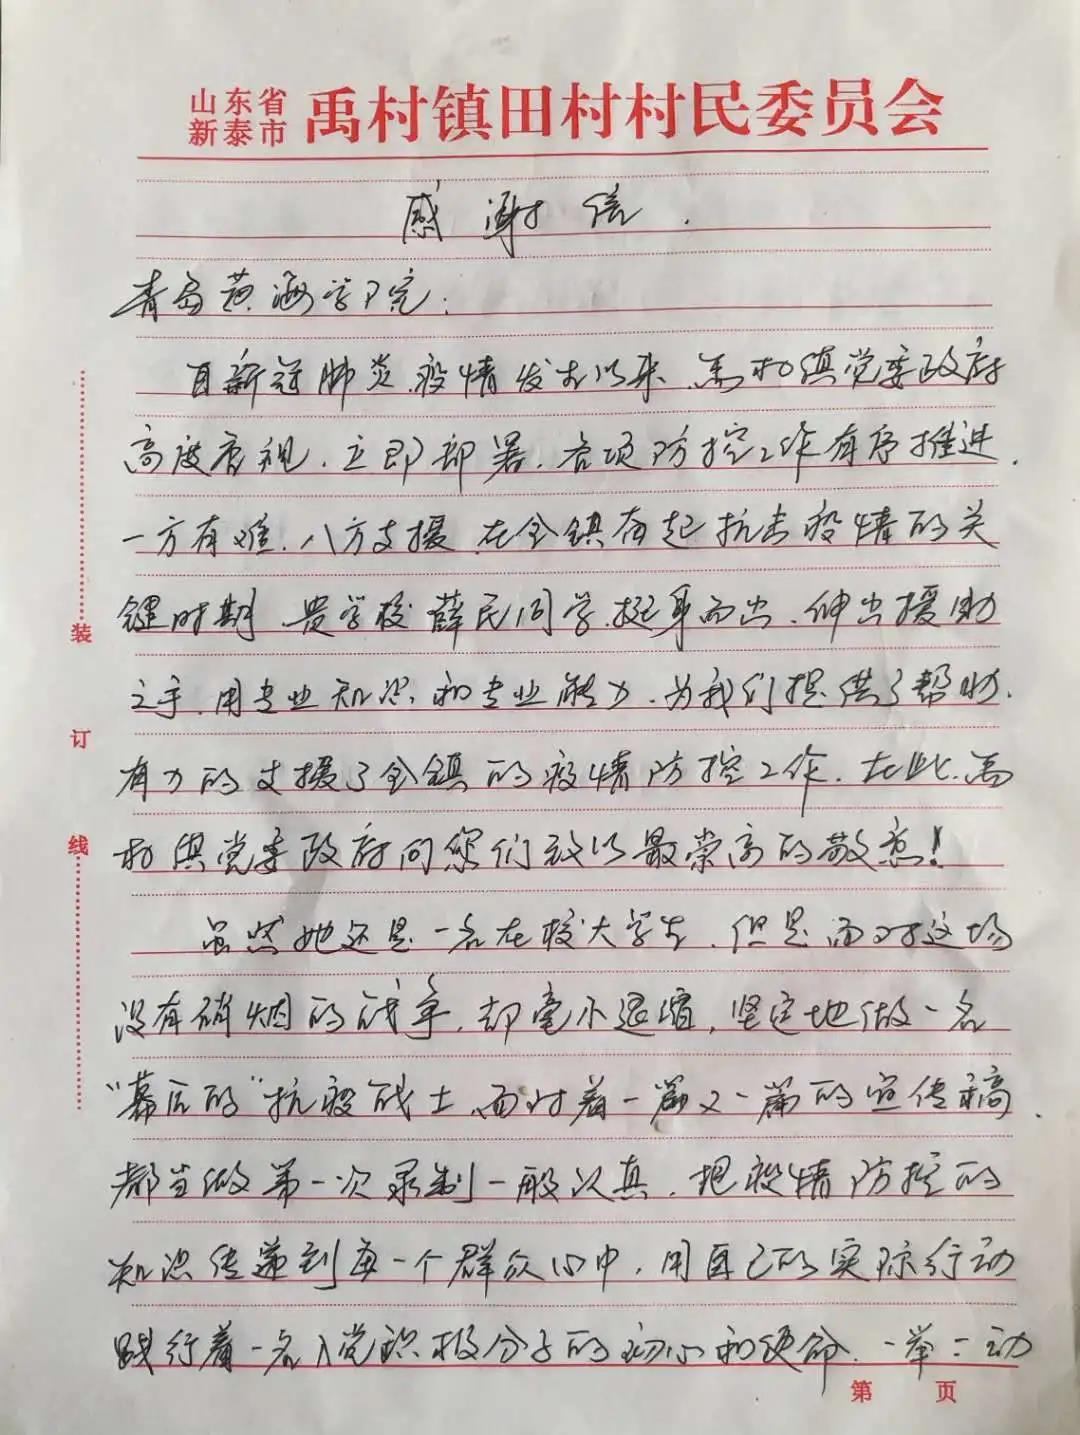 山东省
新泰市 禹村镇田村村民委员会
感谢信.
青岛黄海学院:
自新冠肺炎疫情发生以来,禹村镇党委政府
高度重视.立即部署.各项防控工作有序推进.
一方有难.八方支援.在全镇奋起抗击疫情的关
键时期,贵学校薛民同学,挺身而出.伸出援助
之手.用专业知识和专业能力.为我们提供了帮助.
有力的支援了全镇的疫情防控工作.在此,禹
村镇党委政府向您们致以最崇高的敬意!
虽然她还是一名在校大学生,但是面对这场
没有硝烟的战争,却毫不退缩,坚定地做一名
"幕后的"抗疫战士,面对着一篇又一篇的宣传稿.
都当做第一次录制一般认真.把疫情防控的
知识传递到每一个群众心中.用自己的实际行动
践行着一名入党积极分子的初心和使命.一举一动
装
订
线
第 页